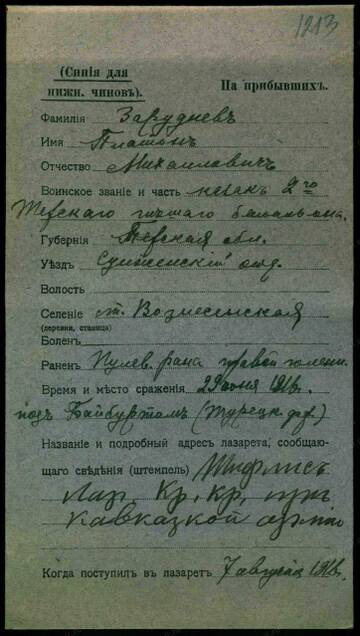 1213
(Синія для
нижн. чиновъ).
На прибывшихъ.
Фамилія Зарудневъ
Имя Платонъ
Отчество Михаиловичъ
Воинское званіе и часть казакъ 2го
Терскаго пѣшаго баталіона.
Губернія Терская обл.
Уѣздъ Сунженскій отд.
Волость
Селеніе ст. Вознесенская
(деревня, станица)
Боленъ
Раненъ Пулев. рана правой голени.
Время и мѣсто сраженія 29 іюня 1916г.
подъ Байбуртомъ (Турецк. фр.)
Названіе и подробный адресъ лазарета, сообщаю-
щаго свѣдѣнія (штемпель) Тифлисъ
Лаз. Кр. Кр. при
Кавказкой арміи
Когда поступилъ въ лазаретъ 7 августа 1916г.